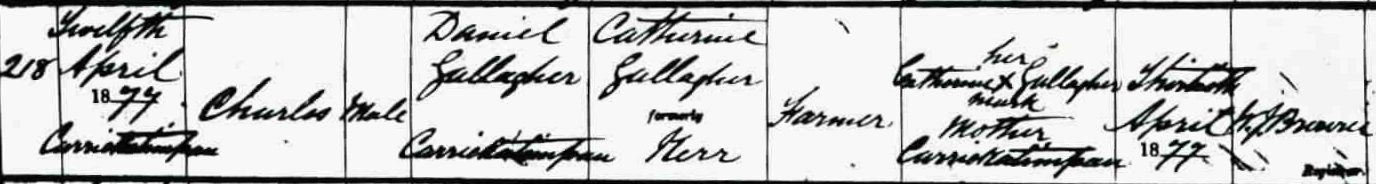 218
Twelfth
April
1877
Carrickatimpan
Charles
Male
Daniel
Gallagher
Carrickatimpan
Catherine
Gallagher
formerly
Kerr
Farmer
her
Catherine X Gallagher
mark
Mother
Carrickatimpan
Thirtieth
April
1877
Registrar.